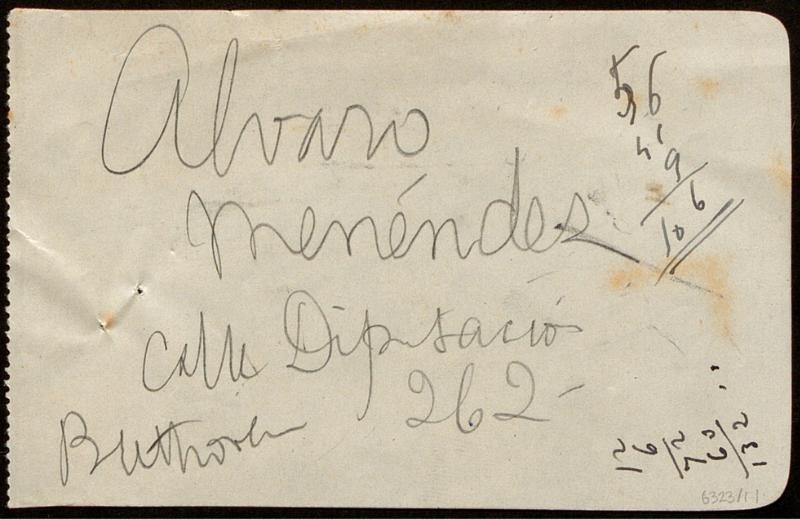 Alvaro
Menéndez
Calle Diputació
262-
Beethoven
56
106
12
6
72
60
132
6323/11